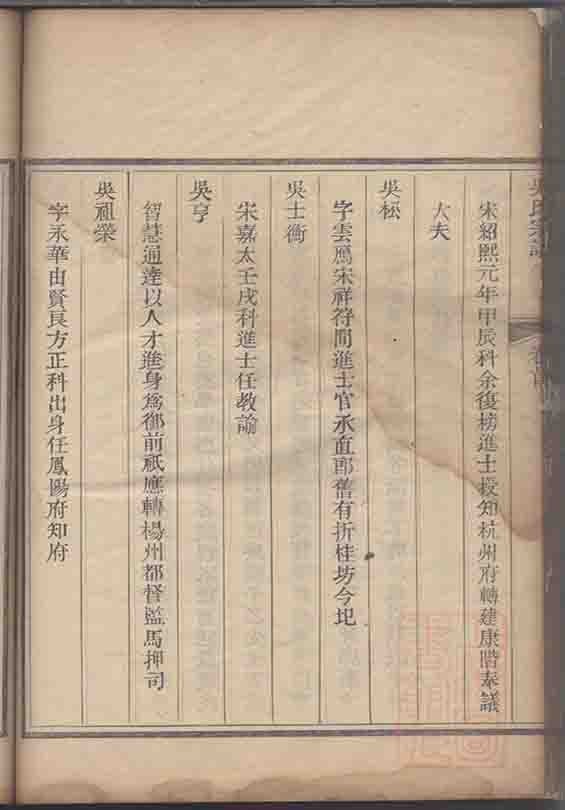 吳氏宗譜
卷首
宋紹熙元年甲辰科余復榜進士授知杭州府轉建康階奉議
大夫
吳松
字雲鴈宋祥符間進士官承直郎舊有折桂坊今圯
吳士衡
宋嘉太壬戌科進士任教諭
吳亨
智慧通達以人才進身為御前祇應轉楊州都督監馬押司
吳祖榮
字永華由賢良方正科出身任鳳陽府知府